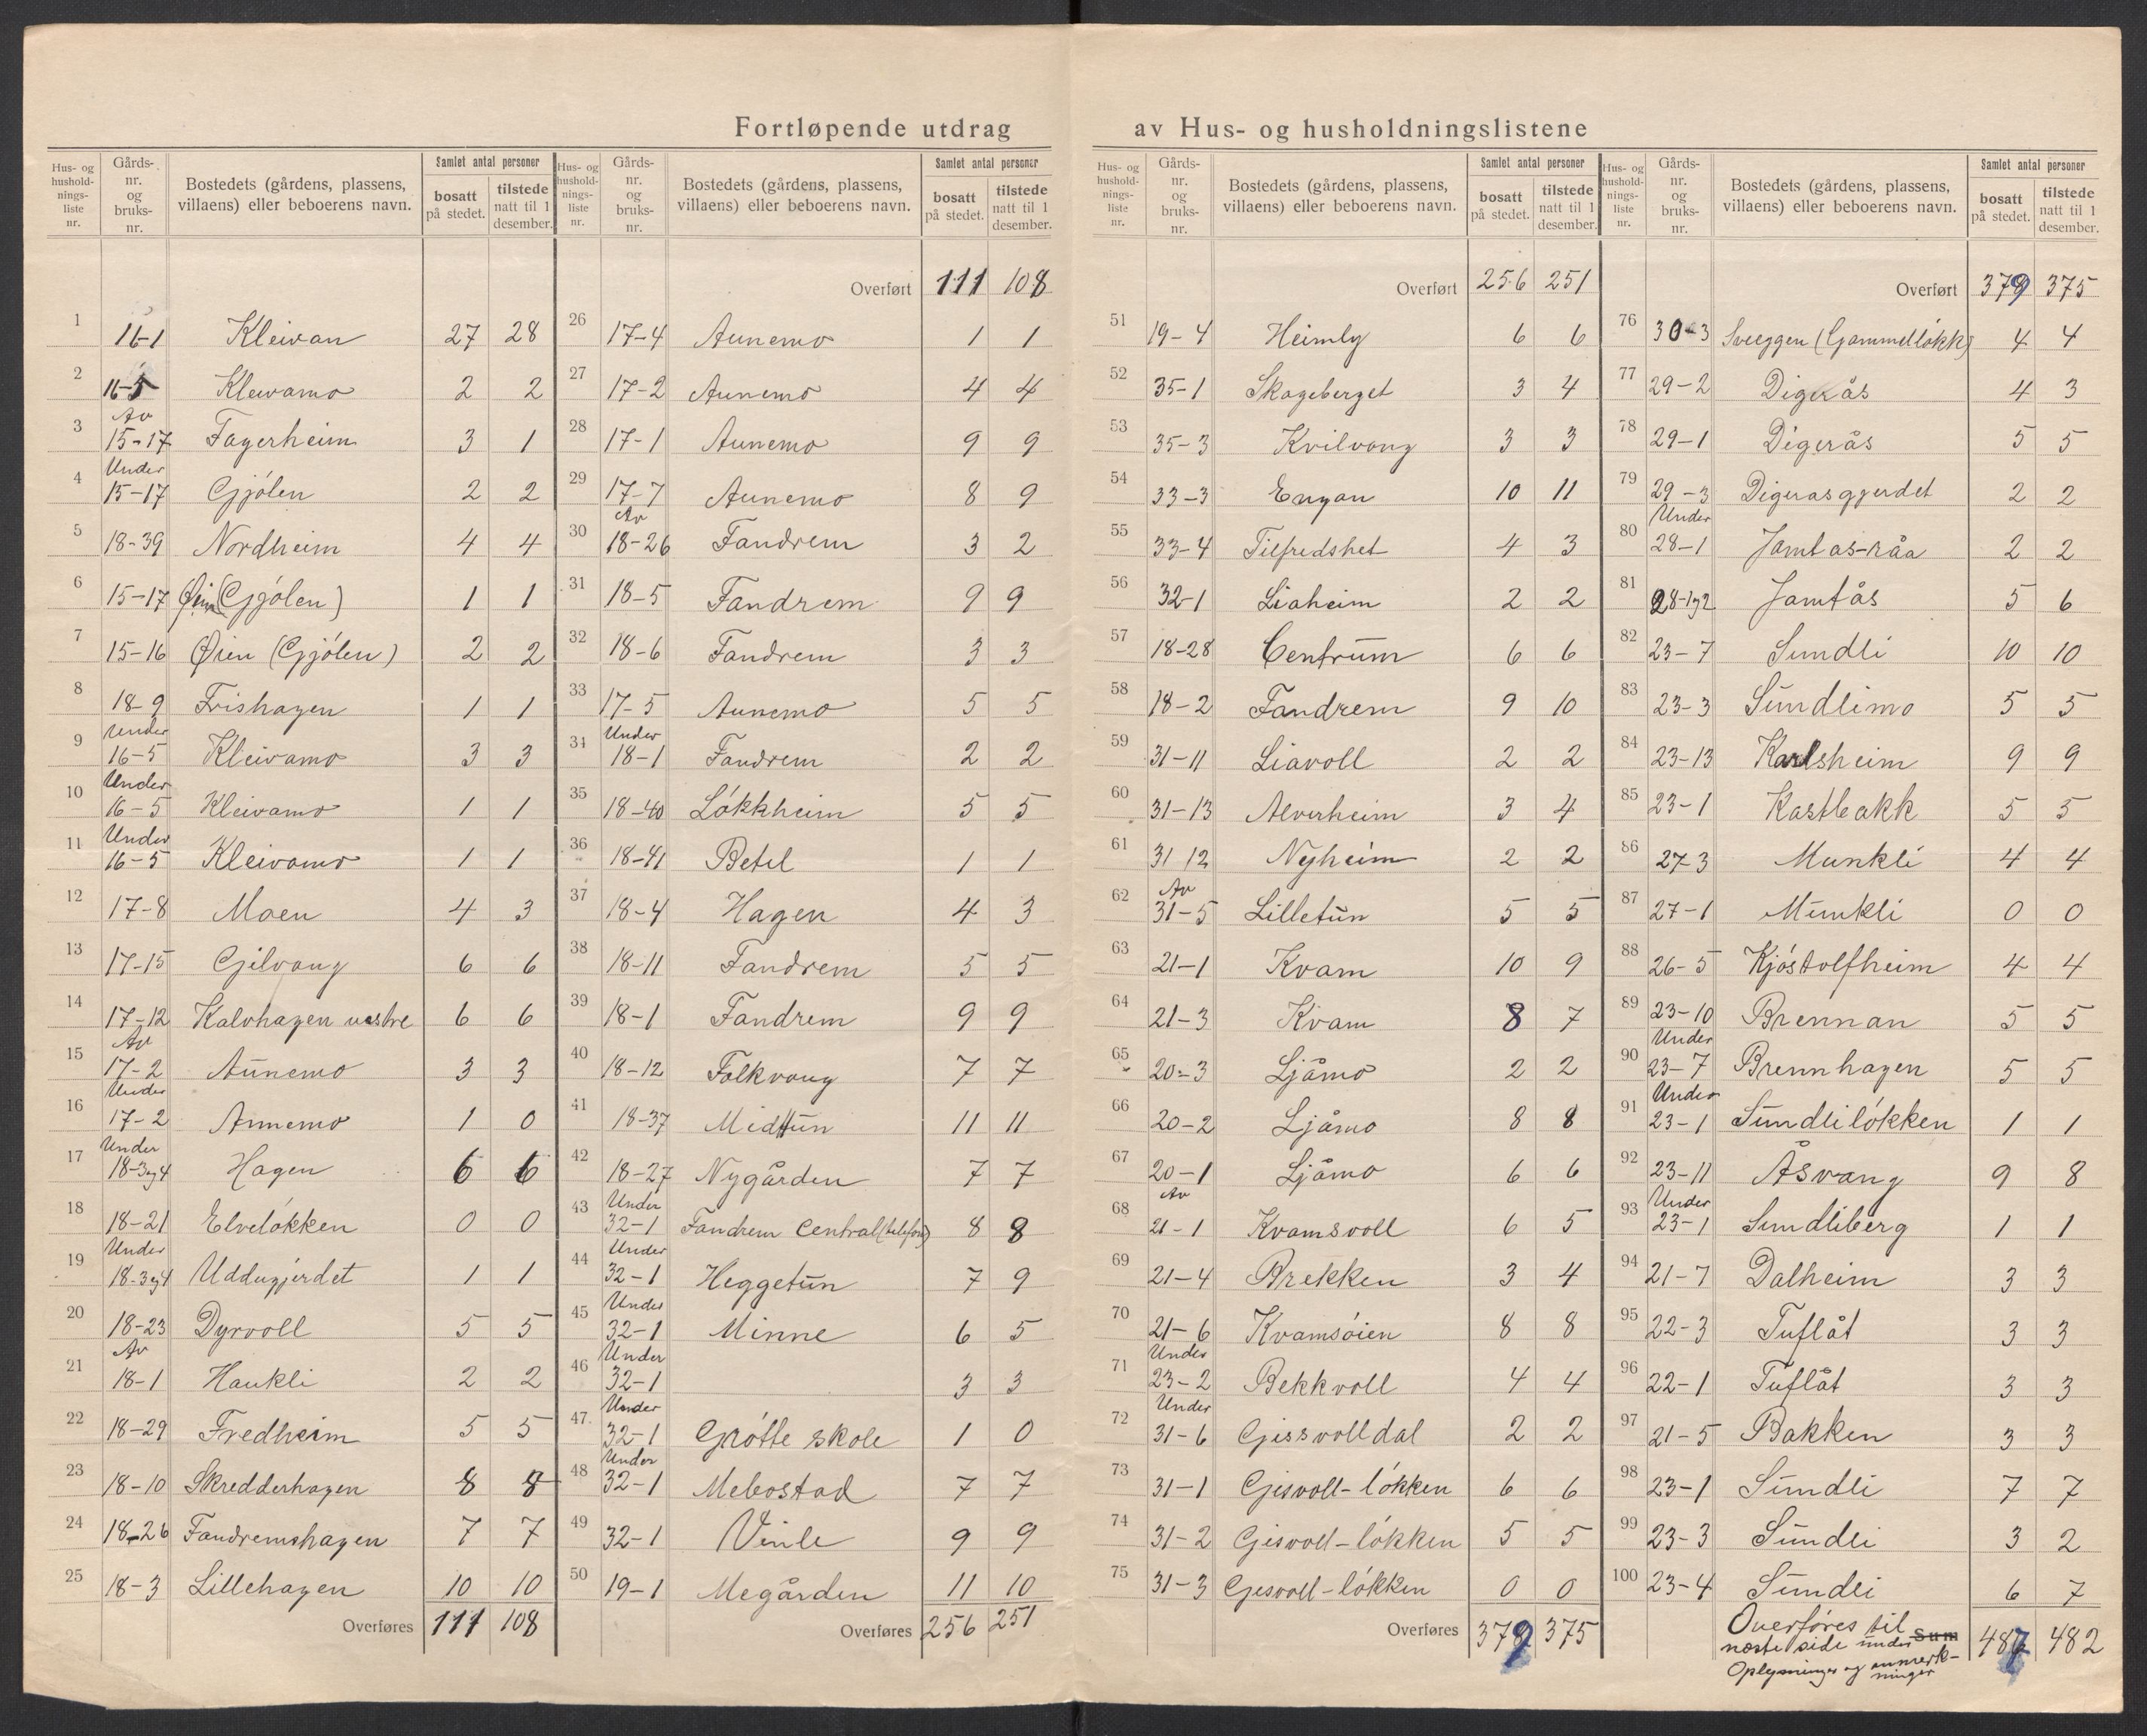 Fortløpende utdrag av Hus- og husholdningslistene
Hus- og husholdnings-liste nr. Gårds-nr. og bruks-nr. Bostedets (gårdens, plassens, villaens) eller beboerens navn. Samlet antal personer bosatt på stedet. tilstede natt til 1 desember.
1 16-1 Kleivan 27 28
2 16-5 Kleivamo 2 2
3 Av 15-17 Fagerheim 3 1
4 Under 15-17 Gjölen 2 2
5 18-39 Nordheim 4 4
6 15-17 Øien (Gjölen) 1 1
7 15-16 Øien (Gjölen) 2 2
8 18-9 Frishagen 1 1
9 Under 16-5 Kleivamo 3 3
10 Under 16-5 Kleivamo 1 1
11 Under 16-5 Kleivamo 1 1
12 17-8 Moen 4 3
13 17-15 Gilvang 6 6
14 17-12 Kalvhagen vestre 6 6
15 Av 17-2 Aunemo 3 3
16 Under 17-2 Aunemo 1 0
17 Under 18-3og4 Hagen 6 6
18 18-21 Elvelökken 0 0
19 Under 18-3og4 Uddugjerdet 1 1
20 18-23 Dyrvoll 5 5
21 Av 18-1 Haukli 2 2
22 18-29 Fredheim 5 5
23 18-10 Skredderhagen 8 8
24 18-26 Fandremshagen 7 7
25 18-3 Lillehagen 10 10
Overføres 111 108
Hus- og husholdnings-liste nr. Gårds-nr. og bruks-nr. Bostedets (gårdens, plassens, villaens) eller beboerens navn. Samlet antal personer bosatt på stedet. tilstede natt til 1 desember.
Overført 111 108
26 17-4 Aunemo 1 1
27 17-2 Aunemo 4 4
28 17-1 Aunemo 9 9
29 17-7 Aunemo 8 9
30 Av 18-26 Fandrem 3 2
31 18-5 Fandrem 9 9
32 18-6 Fandrem 3 3
33 17-5 Aunemo 5 5
34 Under 18-1 Fandrem 2 2
35 18-40 Lökkheim 5 5
36 18-41 Betel 1 1
37 18-4 Hagen 4 3
38 18-11 Fandrem 5 5
39 18-1 Fandrem 9 9
40 18-12 Folkvang 7 7
41 18-37 Midttun 11 11
42 18-27 Nygården 7 7
43 Under 32-1 Fandrem Central (telefon) 8 8
44 Under 32-1 Heggetun 7 9
45 Under 32-1 Minne 6 5
46 Under 32-1 3 3
47. Under 32-1 Grötte skole 1 0
48 Under 32-1 Mebostad 7 7
49 32-1 Vinle 9 9
50 19-1 Megården 11 10
Overføres 256 251
Hus- og husholdnings-liste nr. Gårds-nr. og bruks-nr. Bostedets (gårdens, plassens, villaens) eller beboerens navn. Samlet antal personer bosatt på stedet. tilstede natt til 1 desember.
Overført 256 251
51 19-4 Heimly 6 6
52 35-1 Skogeberget 3 4
53 35-3 Kvilvang 3 3
54 33-3 Engan 10 11
55 33-4 Tilfredshet 4 3
56 32-1 Liaheim 2 2
57 18-28 Centrum 6 6
58 18-2 Fandrem 9 10
59 31-11 Liavoll 2 2
60 31-13 Alverheim 3 4
61 31 12 Nyheim 2 2
62 Av 31-5 Lilletun 5 5
63 21-1 Kvam 10 9
64 21-3 Kvam 8 7
65 20-3 Ljåmo 2 2
66 20-2 Ljåmo 8 8
67 20-1 Ljåmo 6 6
68 Av 21-1 Kvamsvoll 6 5
69 21-4 Brekken 3 4
70 21-6 Kvamsöien 8 8
71 Under 23-2 Bekkvoll 4 4
72 Under 31-6 Gissvolldal 2 2
73 31-1 Gisvoll-lökken 6 6
74 31-2 Gisvoll-lökken 5 5
75 31-3 Gisvoll-lökken 0 0
Overføres 379 375
Hus- og husholdnings-liste nr. Gårds-nr. og bruks-nr. Bostedets (gårdens, plassens, villaens) eller beboerens navn. Samlet antal personer bosatt på stedet. tilstede natt til 1 desember.
Overført 379 375
76 30-3 Sveggen (Gammellökk) 4 4
77 29-2 Digerås 4 3
78 29-1 Digerås 5 5
79 29-3 Digerasgjerdet 2 2
80 Under 28-1 Jamtas-råa 2 2
81 28-1og2 Jamtås 5 6
82 23-7 Sundli 10 10
83 23-3 Sundlimo 5 5
84 23-13 Karlsheim 9 9
85 23-1 Kastbakk 5 5
86 27-3 Munkli 4 4
87 27-1 Munkli 0 0
88 26-5 Kjöstolfheim 4 4
89 23-10 Brennan 5 5
90 Under 23-7 Brennhagen 5 5
91 Under 23-1 Sundlilökken 1 1
92 23-11 Åsvang 9 8
93 Under 23-1 Sundliberg 1 1
94 21-7 Dalheim 3 3
95 22-3 Tuflåt 3 3
96 22-1 Tuflåt 3 3
97 21-5 Bakken 3 3
98 23-1 Sundli 7 7
99 23-3 Sundli 3 2
100 23-4 Sundli 6 7
Overföres til Sum 487 482
næste side under
Oplysninger og anmerk-
ninger